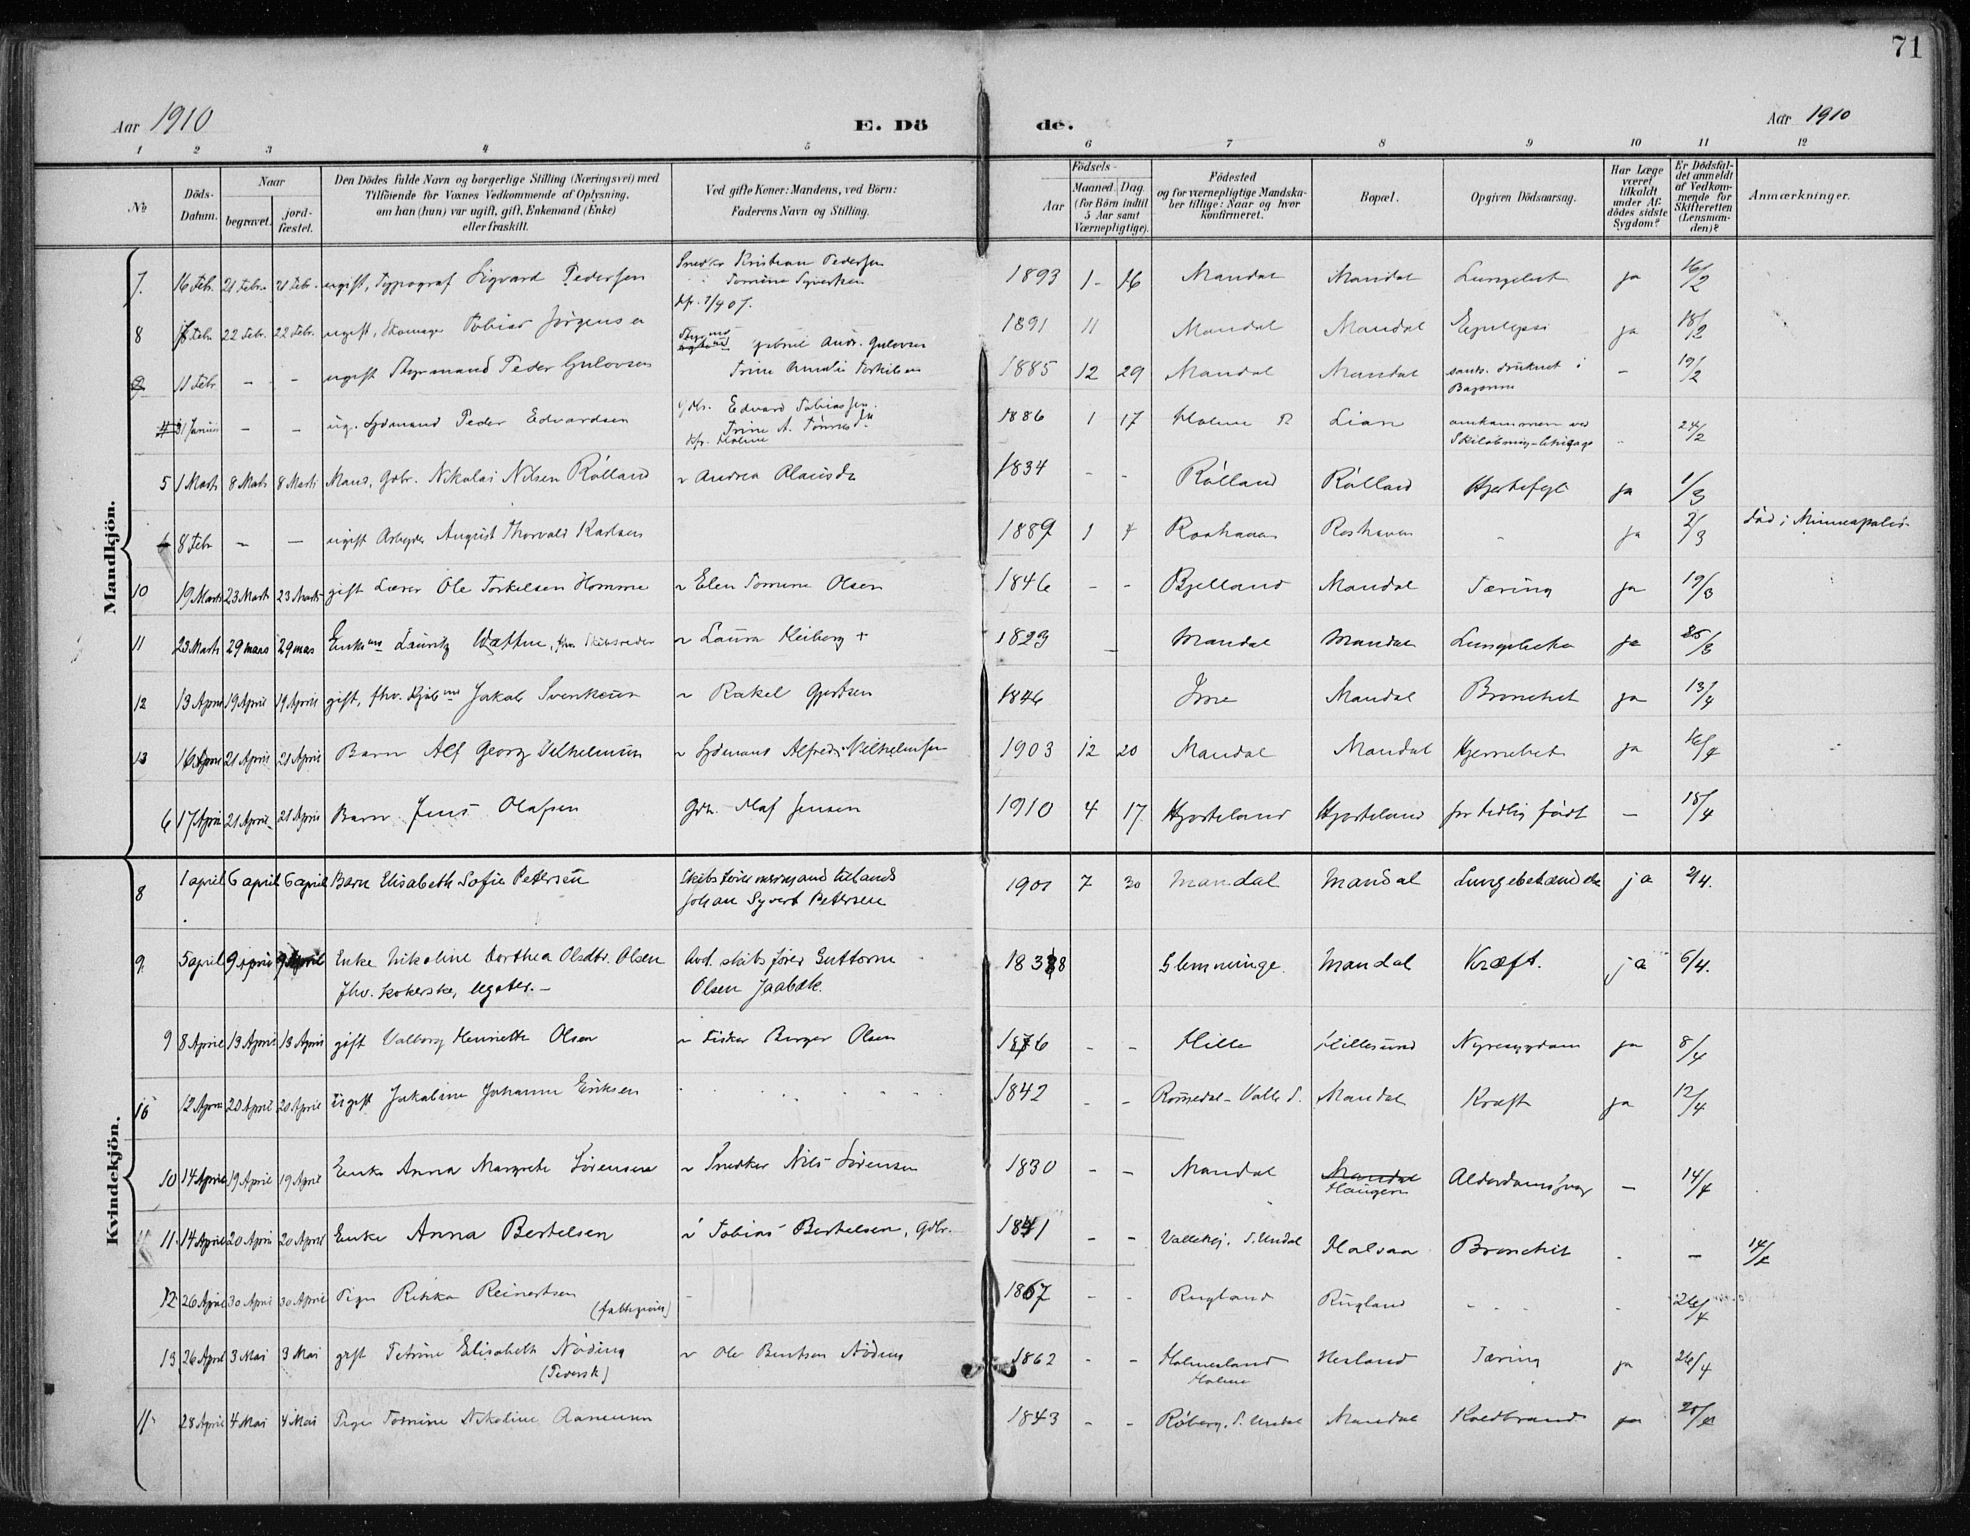 71
Aar 1910
E. Dö
de.
Aar 1910
1 2 3 4 5 6 7 8 9 10 11 12
No
Döds-Datum.
Naar
begravet.
jord-fæstet.
Den Dödes fulde Navn og borgerlige Stilling (Næringsvei) med
Tilföiende for Voxnes Vedkommende af Oplysning,
om han (hun) var ugift, gift, Enkemand (Enke)
eller fraskilt.
Ved gifte Koner: Mandens, ved Börn:
Faderens Navn og Stilling.
Födsels-
Aar
Maaned. Dag.
(for Börn indtil
5 Aar samt
Værnepligtige).
Födested
og for værnepligtige Mandska-
ber tillige: Naar og hvor
Konfirmeret.
Bopæl.
Opgiven Dödsaarsag.
Har Læge
været
tilkaldt
under Af-
dödes sidste
Sygdom?
Er Dödsfal-
det anmeldt
af Vedkom-
mende for
Skifteretten
(Lensman-
den)?
Anmærkninger.
Mandkjön.
7. 16 Febr. 21 Febr. 21 Febr. ugift, Typograf Sigvard Pedersen Snedker Kristian Pedersen 1893 1 16 Mandal Mandal Lungebet ja 16/2
Tomine Syvertsen
8 Febr. 22 Febr. 22 Febr. ugift, Tobias Jørgensen 1891 11 Mandal Mandal Epilepsi ja 18/2
9 11 Febr - - ugift Styrmand Peder Gulovsen Gabriel Andr. Gulovsen 1885 12 29 Mandal Mandal druknet i - 19/2
Trine Amalie Torkilsen
31 Januar - - ug. Sømand Peder Edvardsen Gdbr. Edvard Tobiassen 1886 1 17 Holme P Lian omkommen ved 24/2
Trine A. Tønnesd.
Holme
5 1 Marts 8 Marts 8 Marts Mand, Gdbr. Nikolai Nilsen Rølland Andrea Olausdr 1834 - - Rølland Rølland Hjertefeil ja 1/3
6 8 Febr - - ugift Arbeider August Thorvald Karlsen 1889 1 4 Roshaven Roshaven ja 2/3 død i Minneapolis
10 19 Marts 23 Marts 23 Marts gift Lærer Ole Torkelsen Homme Elen Tomine Olsen 1846 - - Bjelland Mandal Tæring ja 19/3
11 23 Marts 29 mars 29 mars Enkemd Lauritz Wattne, fhv. Skibsreder Laura Heiberg + 1823 - Mandal Mandal ja 25/3
12 13 April 19 April 19 April gift, fhv. Jakob Svenksen Rakel Gjertsen 1846 Mandal Bronchit ja 13/4
13 16 April 21 April 21 April Barn Alf Georg Vilhelmsen Sømand Alfred Vilhelmsen 1903 12 20 Mandal Mandal Hjernebet ja 16/4
6 17 April 21 April 21 April Barn Jens Olafsen Gdb. Olaf Jensen 1910 4 17 Hjorteland Hjorteland for tidlig født - 18/4
Kvindekjön.
8 1 april 6 april 6 april Barn Elisabeth Sofie Pettersen Skibsfører 1901 7 30 Mandal Mandal Lungebetændelse ja 2/4.
Johan Syvert Pettersen
9. 5 april 9 april 9 April Enke Nikoline Dorthea Olsdtr. Olsen Avd. skibsfører Guttorm 1838 Glemminge Mandal Kræft. ja 6/4.
fhv. kokerske, Ugster.- Olsen Jaabæk.
9 8 April 13 April 13 April gift Valborg Henriette Olsen Fisker Birger Olsen 1876 - - Hille Hillesund Nyresygdom ja 8/4
10 12 April 20 April 20 April Ugift Jakobine Johanne Eriksen 1842 - - Romsdal - Valle S. Mandal Kræft ja 12/4
10 14 April 19 April 19 April Enke Anna Margrete Sørensen Snedker Nils Sørensen 1830 - - Mandal Mandal Alderdomssvag - 14/4
Haugen
11 14 April 20 April 20 April Enke Anna Bertelsen Tobias Bertelsen, Gdbr. 1841 - - S. Undal Halsaa Bronchit - 14/4
12 26 April 30 April 30 April Pige Rikka Reinertsen - 1867 - - Rugland Rugland 26/4
13 26 April 3 Mai 3 Mai gift Petrine Elisabeth Nøding Ole Bentsen Nøding 1862 - - Holmesland Hesland Tæring ja 26/4
Holme
11 28 April 4 Mai 4 Mai Pige Tomine Nikoline Aanensen 1843 - - Røberg, S. Undal Mandal Koldbrand ja